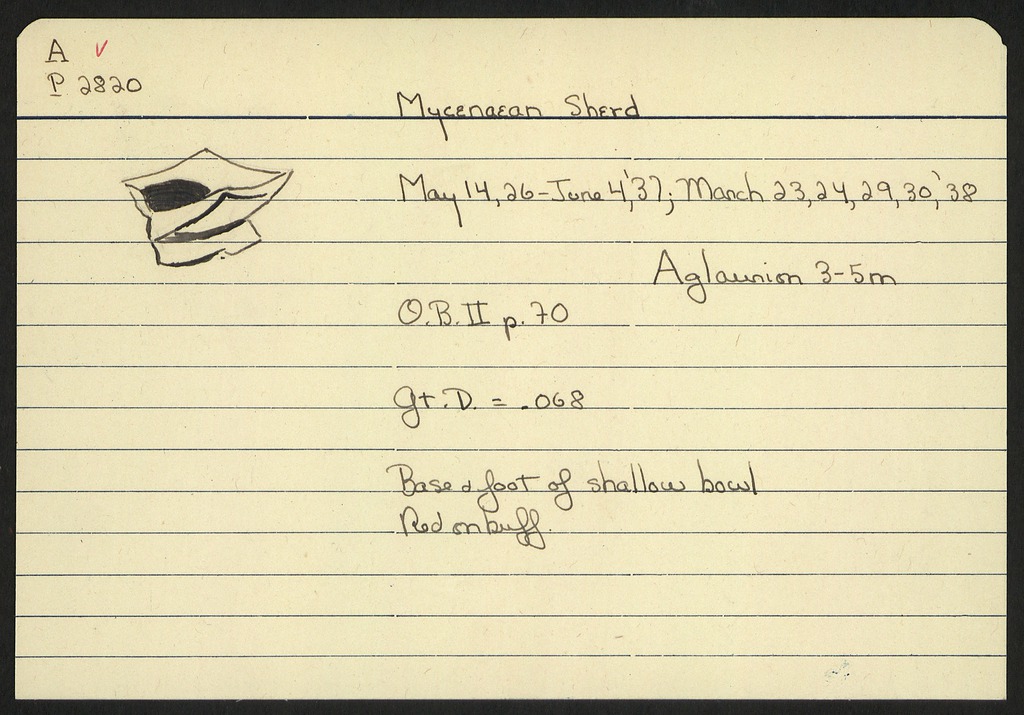 A ✓
P 2820
Mycenaean Sherd
May 14, 26-June 4,'37; March 23, 24, 29, 30,'38
Aglaurion 3-5m
O.B. II p. 70
Gt. D. = .068
Base & foot of shallow bowl
Red on buff.